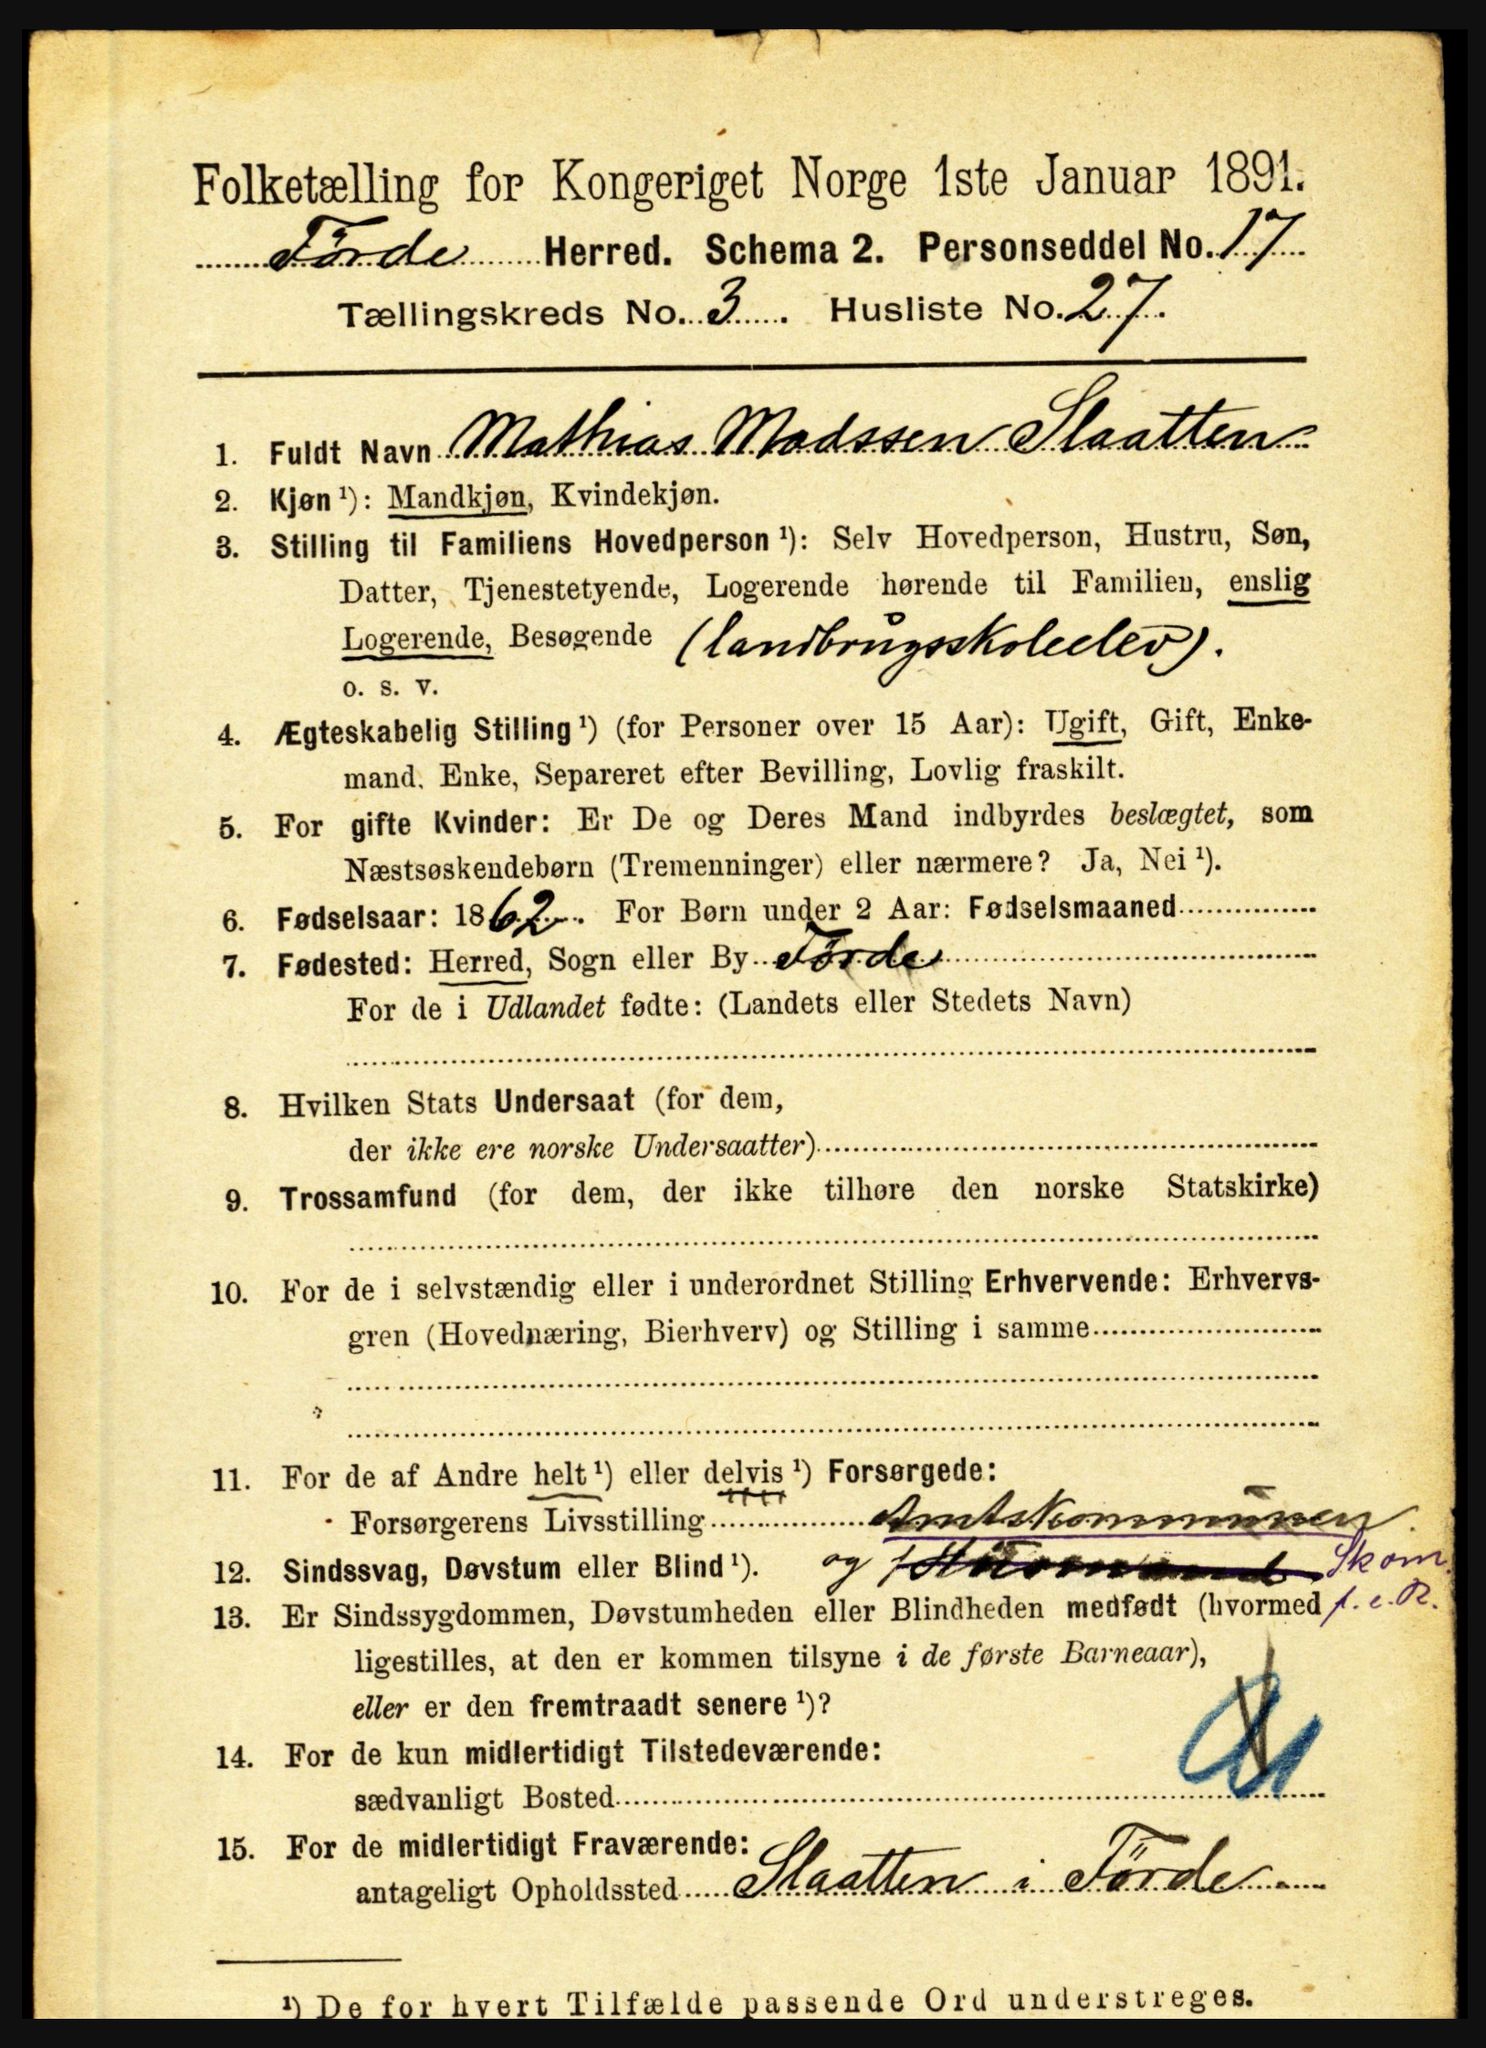 Folketælling for Kongeriget Norge 1ste Januar 1891.
Førde Herred. Schema 2. Personseddel No. 17
Tællingskreds No. 3. Husliste No. 27.
1. Fuldt Navn Mathias Madssen Slaatten
2. Kjøn ¹): Mandkjøn, Kvindekjøn.
3. Stilling til Familiens Hovedperson ¹): Selv Hovedperson, Hustru, Søn,
Datter, Tjenestetyende, Logerende hørende til Familien, enslig
Logerende, Besøgende (landbrugsskoleelev).
o. s. v.
4. Ægteskabelig Stilling ¹) (for Personer over 15 Aar): Ugift, Gift, Enke-
mand, Enke, Separeret efter Bevilling, Lovlig fraskilt.
5. For gifte Kvinder: Er De og Deres Mand indbyrdes beslægtet, som
Næstsøskendebørn (Tremenninger) eller nærmere? Ja, Nei ¹).
6. Fødselsaar: 1862. For Børn under 2 Aar: Fødselsmaaned
7. Fødested: Herred, Sogn eller By Førde
For de i Udlandet fødte: (Landets eller Stedets Navn)
8. Hvilken Stats Undersaat (for dem,
der ikke ere norske Undersaatter)
9. Trossamfund (for dem, der ikke tilhøre den norske Statskirke)
10. For de i selvstændig eller i underordnet Stilling Erhvervende: Erhvervs-
gren (Hovednæring, Bierhverv) og Stilling i samme
11. For de af Andre helt ¹) eller delvis ¹) Forsørgede:
Forsørgerens Livsstilling Amtskommunen.
12. Sindssvag, Døvstum eller Blind ¹). og Skom.
13. Er Sindssygdommen, Døvstumheden eller Blindheden medfødt (hvormed f. e. R.
ligestilles, at den er kommen tilsyne i de første Barneaar),
eller er den fremtraadt senere ¹)?
14. For de kun midlertidigt Tilstedeværende:
sædvanligt Bosted
15. For de midlertidigt Fraværende:
antageligt Opholdssted Slaatten i Førde
¹) De for hvert Tilfælde passende Ord understreges.